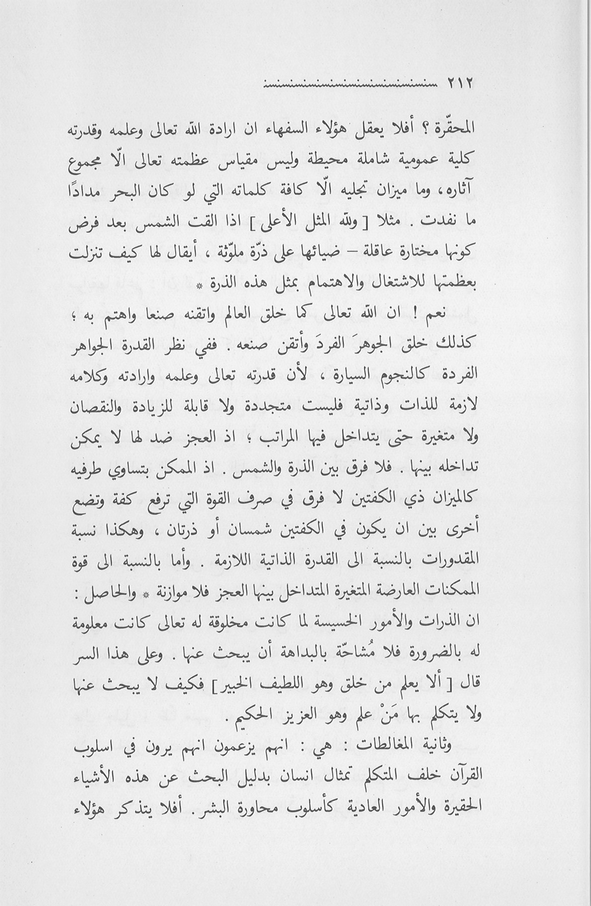 ٢١٢
المحقّرة ؟ أفلا يعقل هؤلاء السفهاء ان ارادة الله تعالى وعلمه وقدرته
كلية عمومية شاملة محيطة وليس مقياس عظمته تعالى الّا مجموع
آثاره، وما ميزان تجليه الّا كافة كلماته التي لو كان البحر مدادًا
ما نفدت . مثلا [ ولله المثل الأعلى ] اذا القت الشمس بعد فرض
كونها مختارة عاقلة – ضيائها على ذرّة ملوّثة ، أيقال لها كيف تنزلت
بعظمتها للاشتغال والاهتمام بمثل هذه الذرة *
نعم ! ان الله تعالى كما خلق العالم واتقنه صنعا واهتم به ؛
كذلك خلق الجوهرَ الفردَ وأتقن صنعه . ففي نظر القدرة الجواهر
الفردة كالنجوم السيارة ، لأن قدرته تعالى وعلمه وارادته وكلامه
لازمة للذات وذاتية فليست متجددة ولا قابلة للزيادة والنقصان
ولا متغيرة حتى يتداخل فيها المراتب ؛ اذ العجز ضد لها لا يمكن
تداخله بينها . فلا فرق بين الذرة والشمس . اذ الممكن بتساوي طرفيه
كالميزان ذي الكفتين لا فرق في صرف القوة التي ترفع كفة وتضع
أخرى بين ان يكون في الكفتين شمسان أو ذرتان ، وهكذا نسبة
المقدورات بالنسبة الى القدرة الذاتية اللازمة . وأما بالنسبة الى قوة
الممكنات العارضة المتغيرة المتداخل بينها العجز فلا موازنة * والحاصل :
ان الذرات والأمور الخسيسة لما كانت مخلوقة له تعالى كانت معلومة
له بالضرورة فلا مُشاحّة بالبداهة أن يبحث عنها . وعلى هذا السر
قال [ ألا يعلم من خلق وهو اللطيف الخبير ] فكيف لا يبحث عنها
ولا يتكلم بها مَنْ علم وهو العزيز الحكيم .
وثانية المغالطات : هي : انهم يزعمون انهم يرون في اسلوب
القرآن خلف المتكلم تمثال انسان بدليل البحث عن هذه الأشياء
الحقيرة والأمور العادية كأسلوب محاورة البشر . أفلا يتذكر هؤلاء